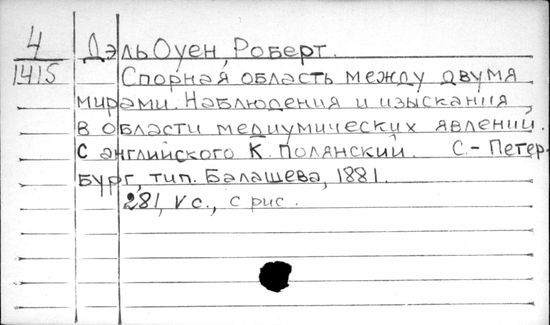 4
1415
Дэль Оуен, Роберт.
Спорная область между двумя
мирами. Наблюдения и изыскания
в области медиумических явлений.
С английского К. Полянский. С.-Петер-
бург, тип. Балашева, 1881.
281, V с., с рис.